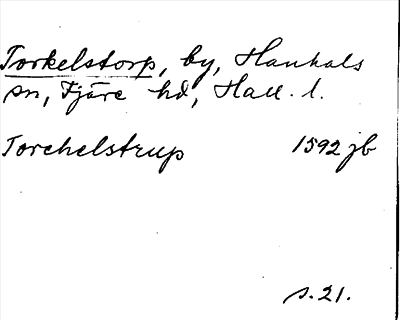 Torkelstorp, by, Hanhals
sn, Fjäre hd, Hall. l.
Torchelstrup 1592 jb
s. 21.